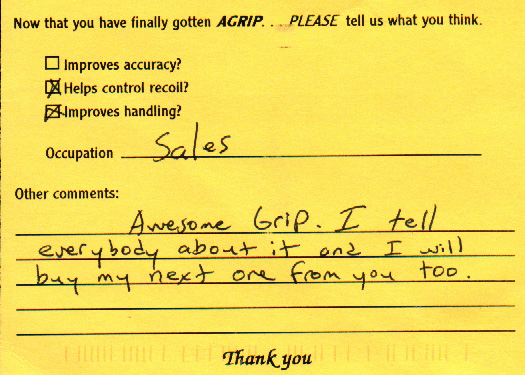 Now that you have finally gotten AGRIP. . . . PLEASE tell us what you think.
Improves accuracy?
Helps control recoil?
Improves handling?
Occupation Sales
Other comments:
Awesome Grip. I tell
everybody about it and I will
buy my next one from you too.
Thank you